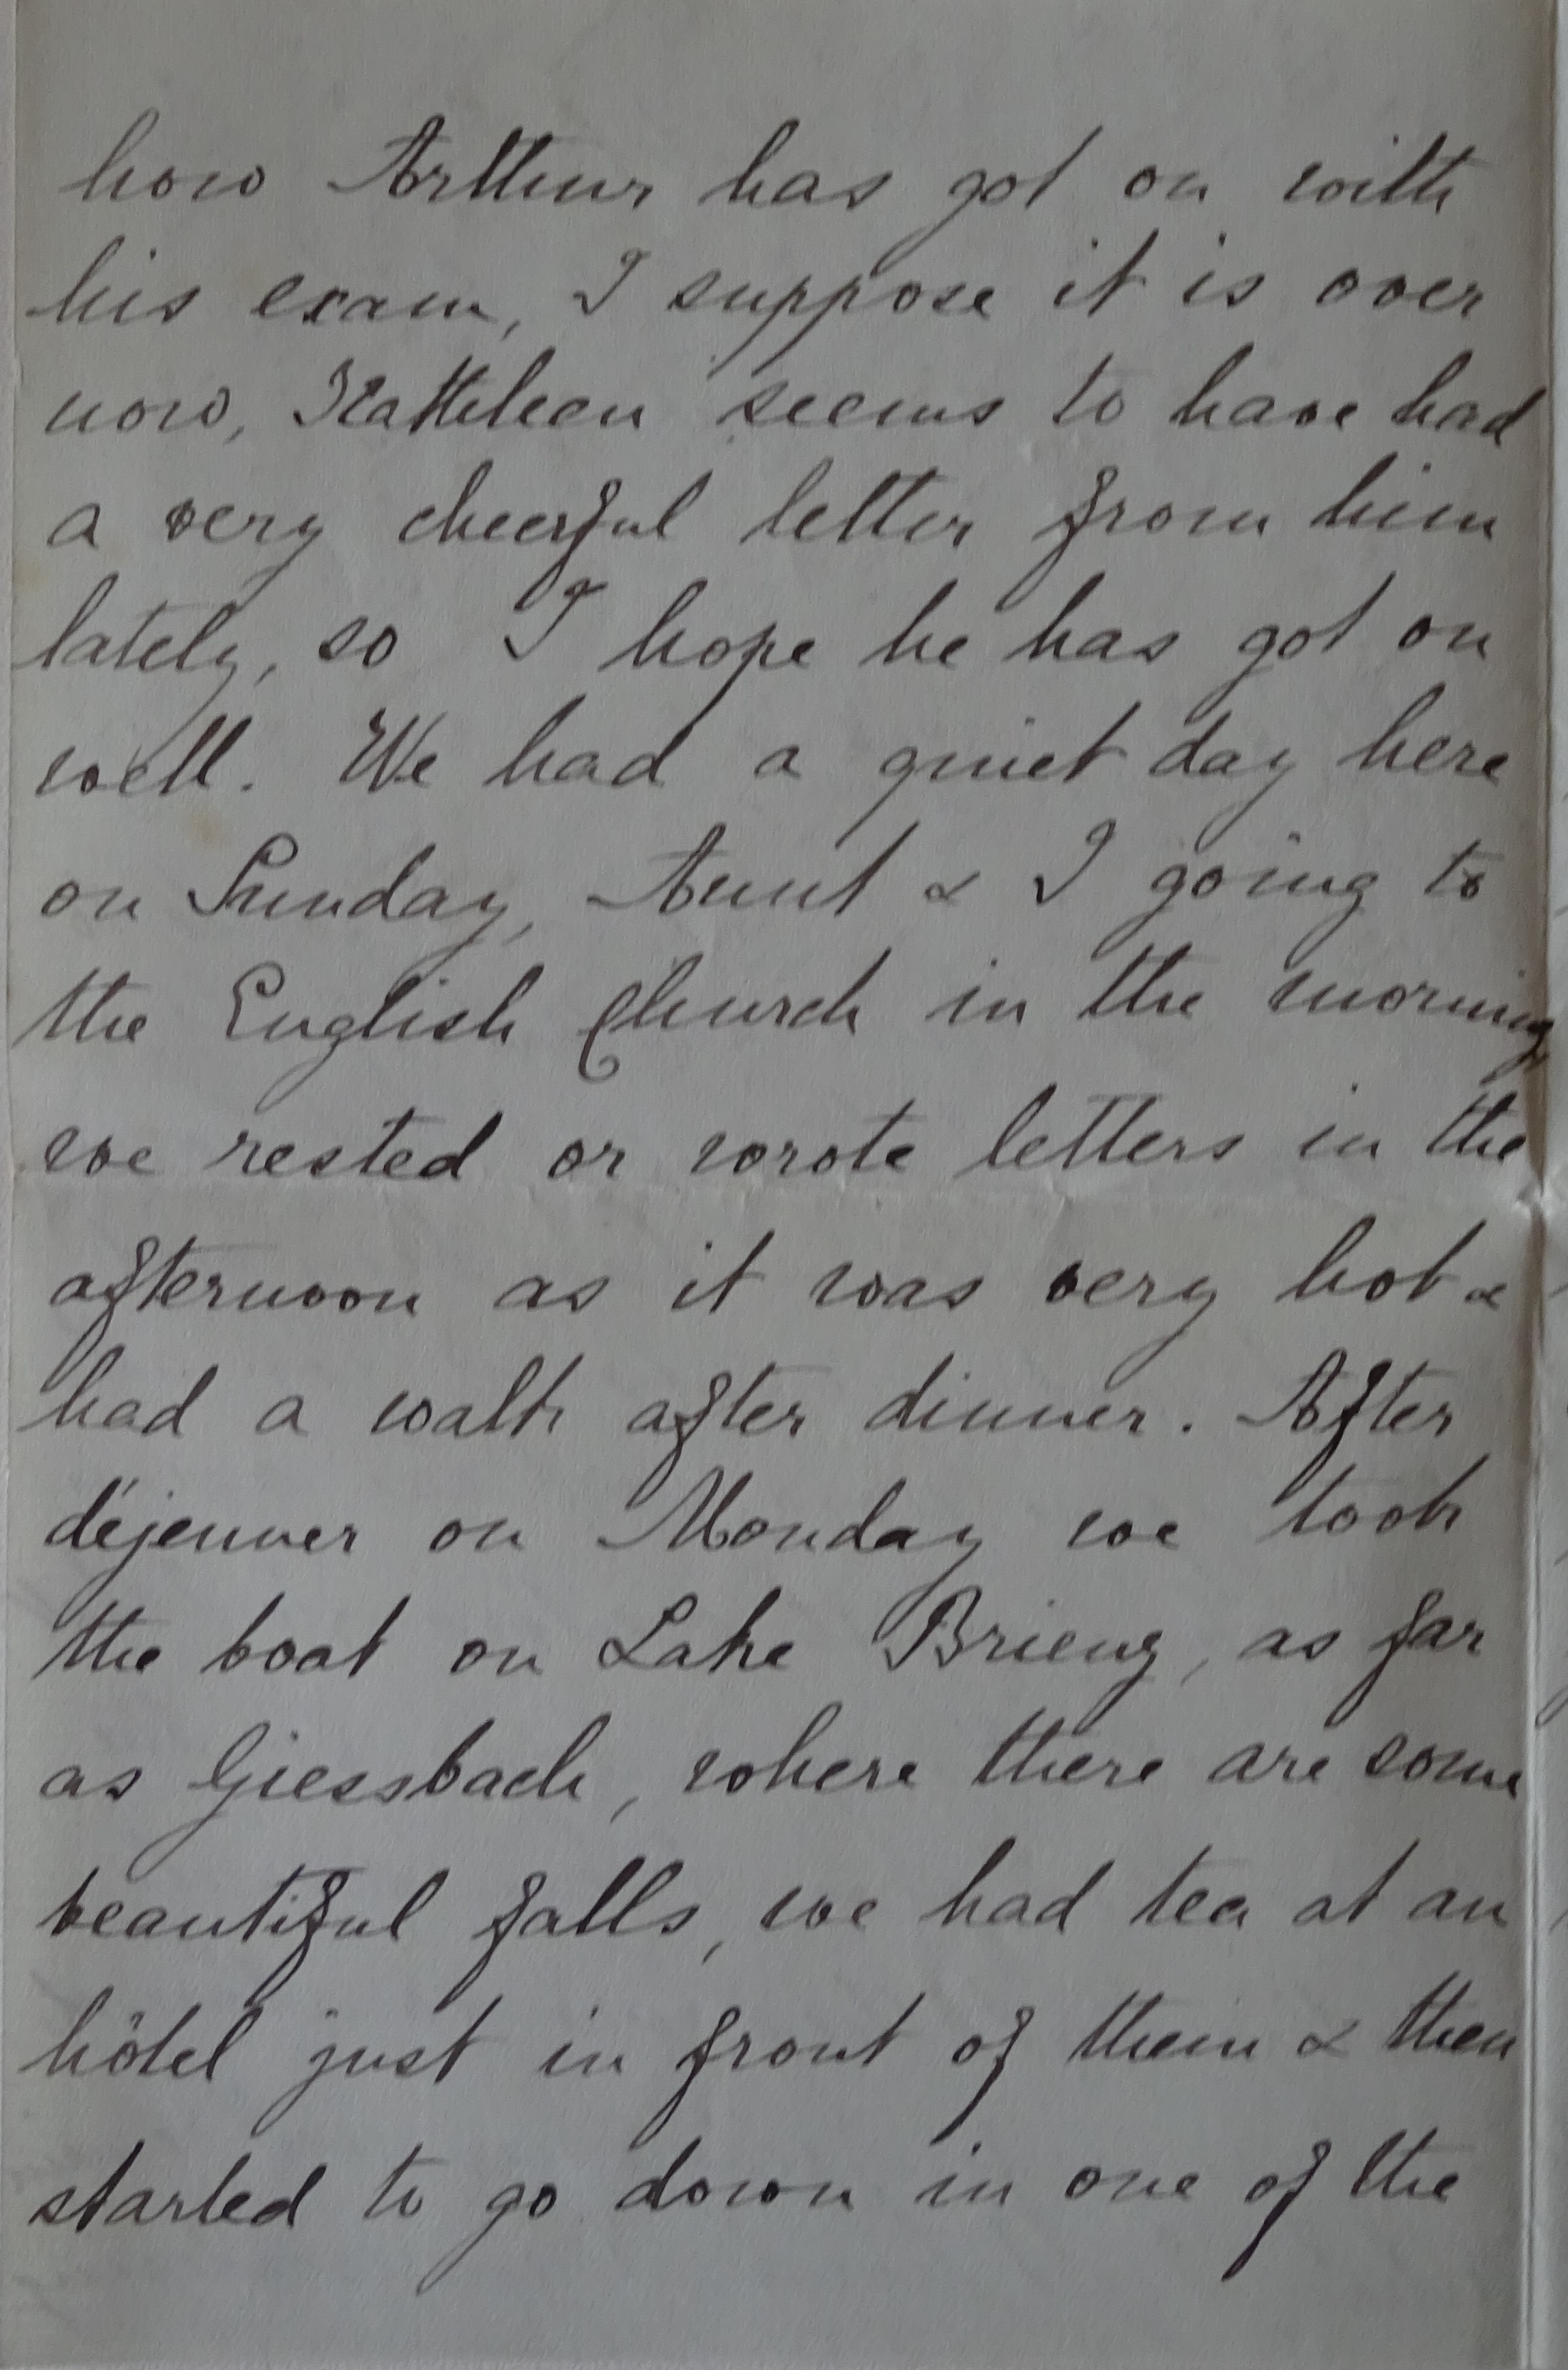 how Arthur has got on with
his exam, I suppose it is over
now, Kathleen seems to have had
a very cheerful letter from him
lately, so I hope he has got on
well. We had a quiet day here
on Sunday, Aunt & I going to
the English Church in the morning,
we rested or wrote letters in the
afternoon as it was very hot &
had a walk after dinner. After
déjeuner on Monday we took
the boat on Lake Brienz, as far
as Giessbach, where there are some
beautiful falls, we had tea at an
hôtel just in front of them & then
started to go down in one of the